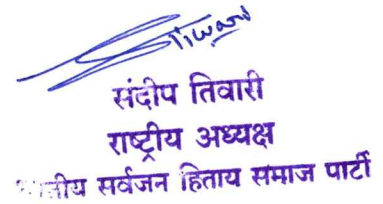 Tiwari
संदीप तिवारी
राष्ट्रीय अध्यक्ष
सर्वजन हिताय समाज पार्टी